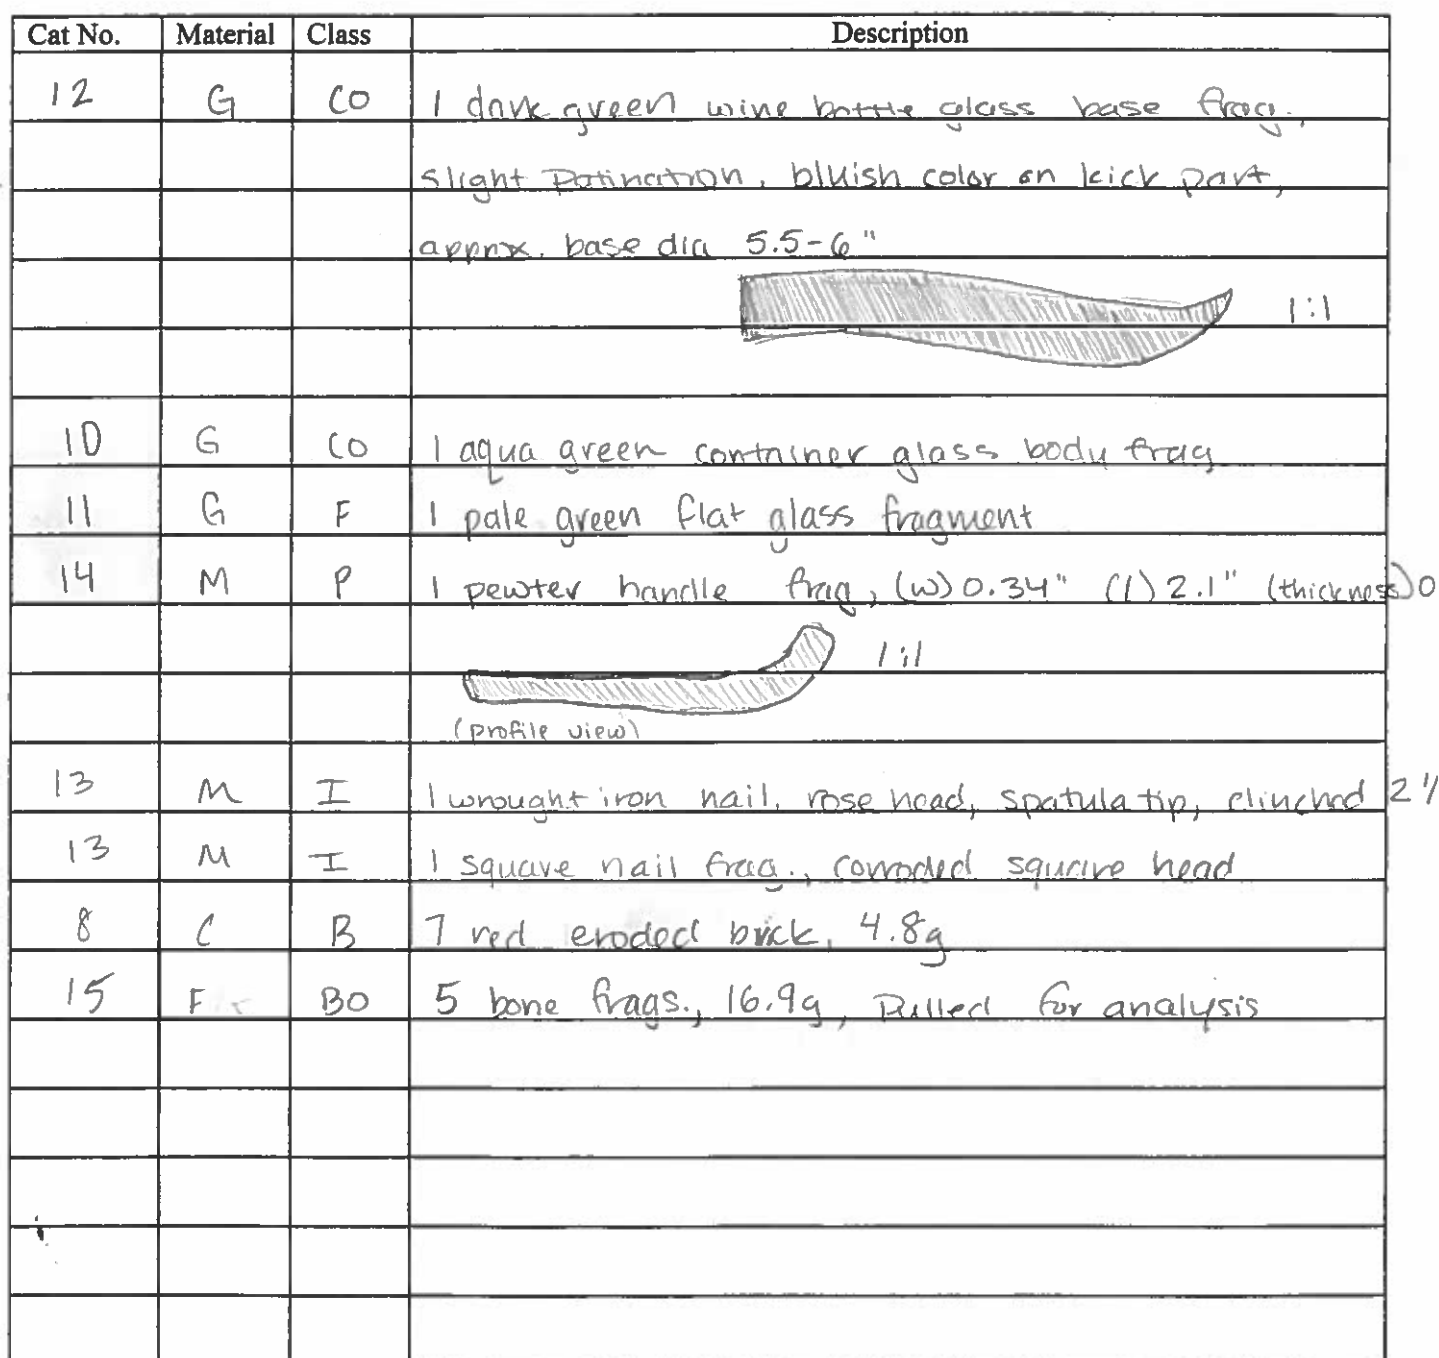 Cat No. Material Class Description
12 G CO 1 dark green wine bottle glass base frag.,
slight Patination, bluish color on kick part,
apprx. base dia 5.5-6"
1:1
10 G CO 1 aqua green container glass body frag
11 G F 1 pale green flat glass fragment
14 M P 1 pewter handle frag, (w) 0.34" (l) 2.1" (thickness) 0
1:1
(profile view)
13 M I 1 wrought iron nail, rose head, spatula tip, clinched 2
13 M I 1 square nail frag., corroded square head
8 C B 7 red eroded brick, 4.8g
15 F BO 5 bone frags., 16.9g, Pulled for analysis